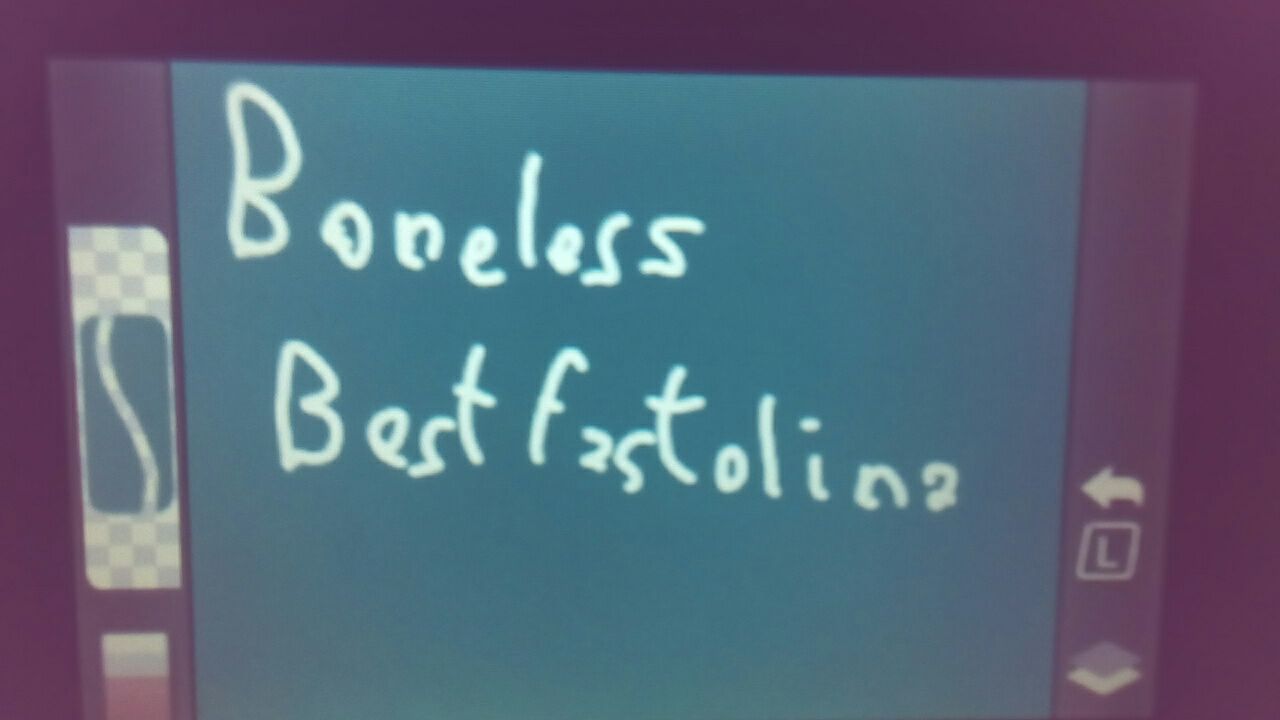 Boneless
Best fastolina
L